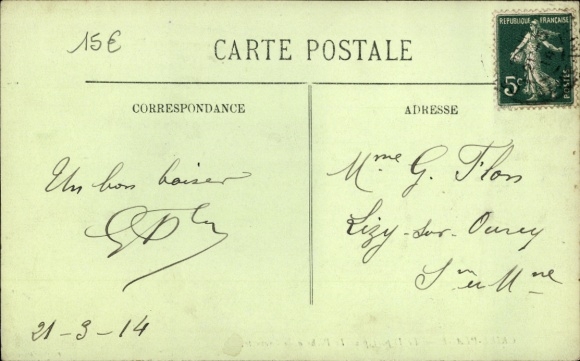 15€
CARTE POSTALE
RÉPUBLIQUE FRANÇAISE
5c
POSTES
CORRESPONDANCE
ADRESSE
Un bon baiser
21-3-14
Mme G. Flon
Lizy-sur-Ourcq
Sne et Mne